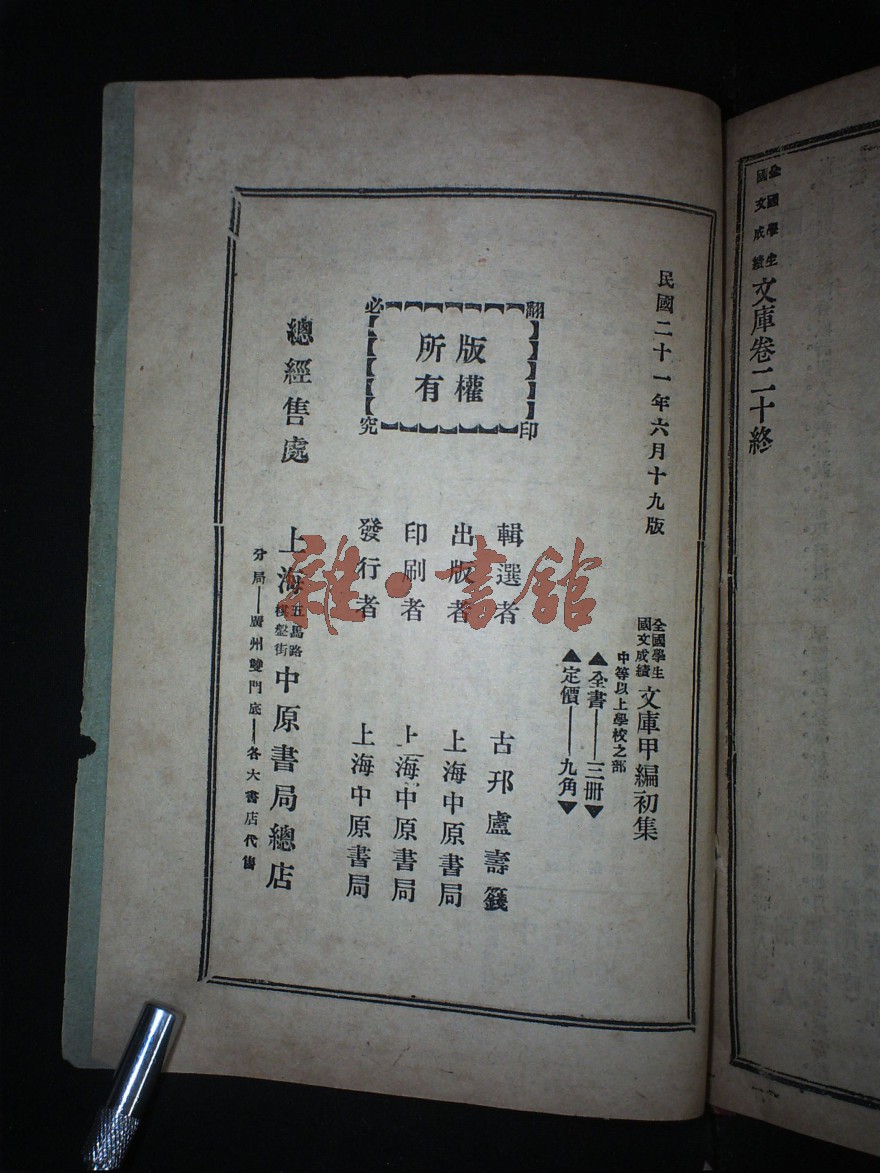 全國學生
國文成績
文庫卷二十終
民國二十一年六月十九版
全國學生
國文成績
文庫甲編初集
中等以上學校之部
▲全書——三册▼
▲定價——九角▼
翻印
必究
版權
所有
輯選者 古邗盧壽籛
出版者 上海中原書局
印刷者 上海中原書局
發行者 上海中原書局
總經售處 上海
五馬路
棋盤街
中原書局總店
分局——廣州雙門底——各大書店代售
雜·書館